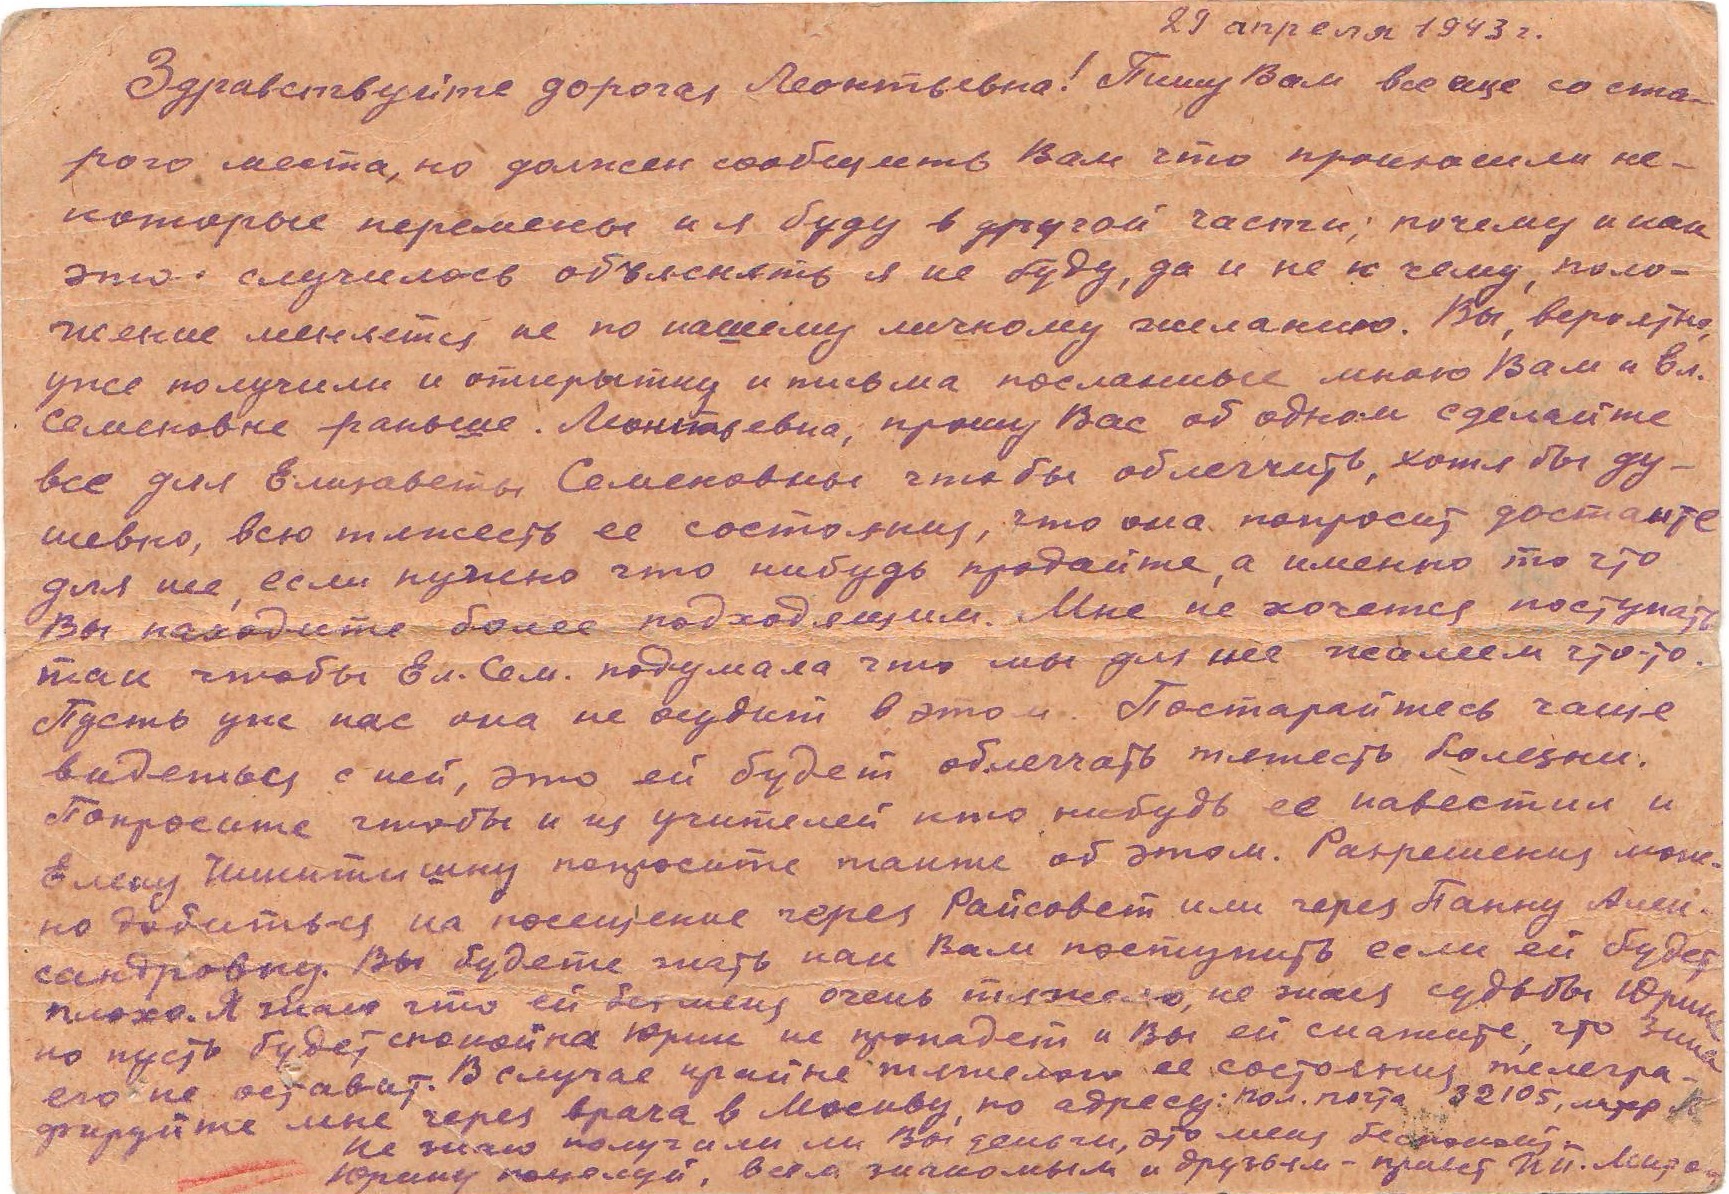 29 апреля 1943 г.
Здравствуйте дорогая Леонтьевна! Пишу Вам все еще со ста-
рого места, но должен сообщить Вам что произошли не-
которые перемены и я буду в другой части; почему и как
это случилось объяснять я не буду, да и не к чему, поло-
жение меняется не по нашему личному желанию. Вы, вероятно,
уже получили и открытку и письма посланные мною Вам и Ел.
Семеновне раньше. Леонтьевна, прошу Вас об одном сделайте
все для Елизаветы Семеновны чтобы облегчить, хотя бы ду-
шевно, всю тяжесть ее состояния, что она попросит достаньте
для нее, если нужно что нибудь продайте, а именно то что
Вы находите более подходящим. Мне не хочется поступать
так чтобы Ел. Сем. подумала что мы для нее жалеем что-то.
Пусть уж нас она не осудит в этом. Постарайтесь чаще
видеться с ней, это ей будет облегчать тяжесть болезни.
Попросите чтобы и из учителей кто нибудь ее навестил и
Елену попросите также об этом. Разрешения мож-
но добиться на посещение через Райсовет или через Панну Алек-
сандровну. Вы будете знать как Вам поступить если ей будет
плохо. Я знаю что ей без меня очень тяжело, не зная судьбы Юрика
но пусть будет спокойна Юрик не пропадет и Вы ей скажите, что Зина
его не оставит. В случае крайне тяжелого ее состояния телегра-
фируйте мне через врача в Москву, по адресу: пол. почта 32105,
Не знаю получили ли Вы деньги, это меня беспокоит.
Юрику поцелуй, всем знакомым и друзьям - привет